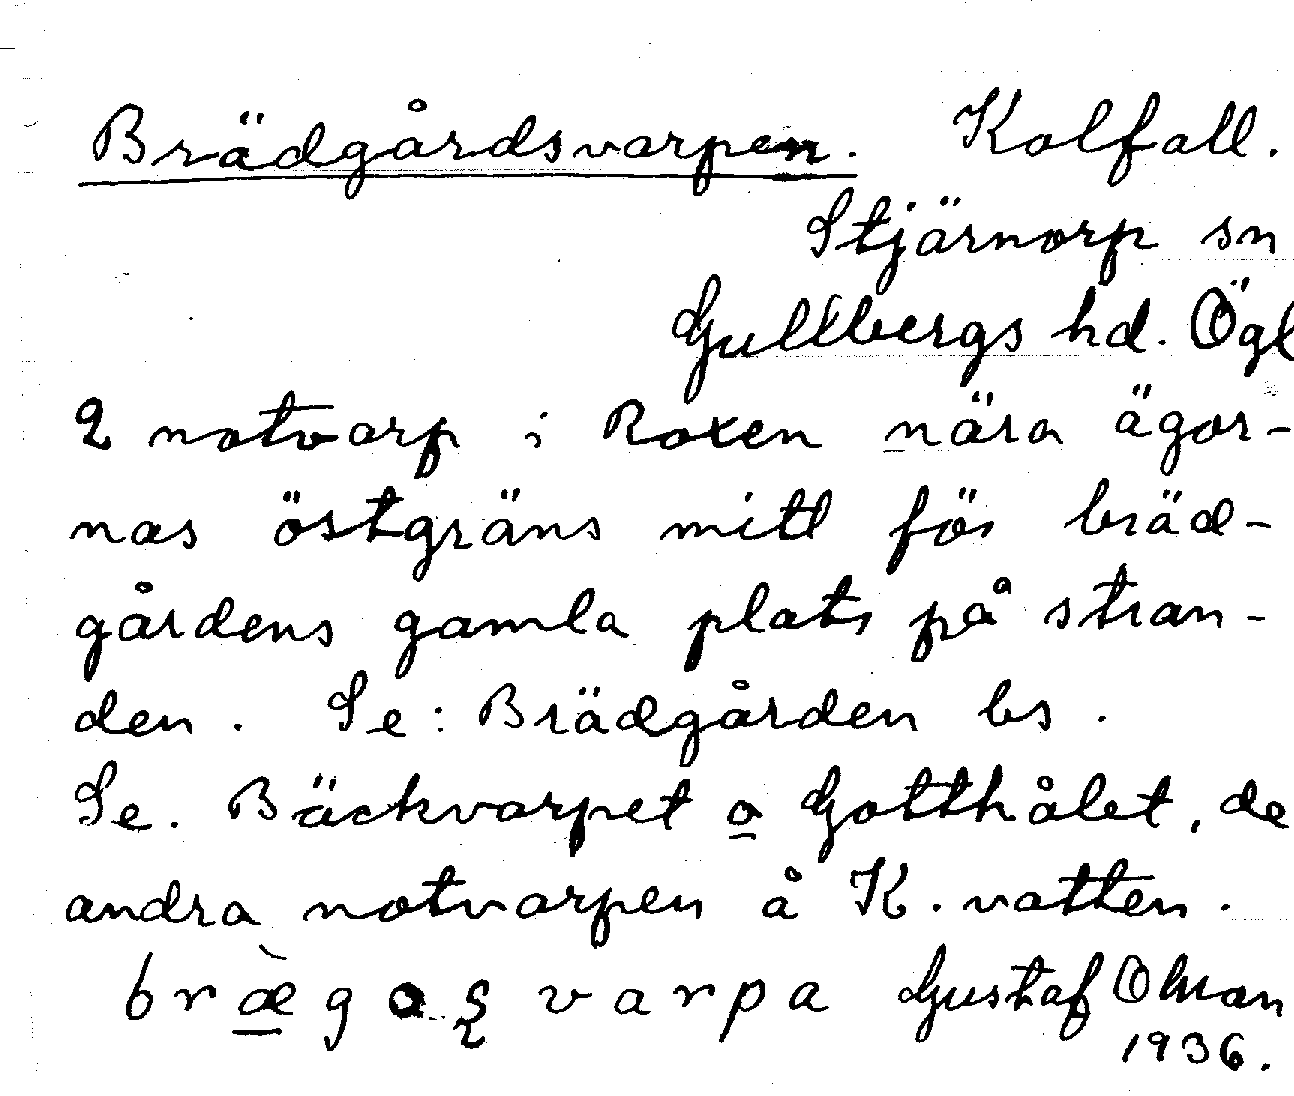 Brädgårdsvarpen. Kolfall.
Stjärnorp sn
Gullbergs hd. Ögl
2 notvarp i Roxen nära ägor-
nas östgräns mitt för bräd-
gårdens gamla plats på stran-
den. Se: Brädgården bs.
Se. Bäckvarpet o Gotthålet, de
andra notvarpen å K. vatten.
Gustaf
1936.